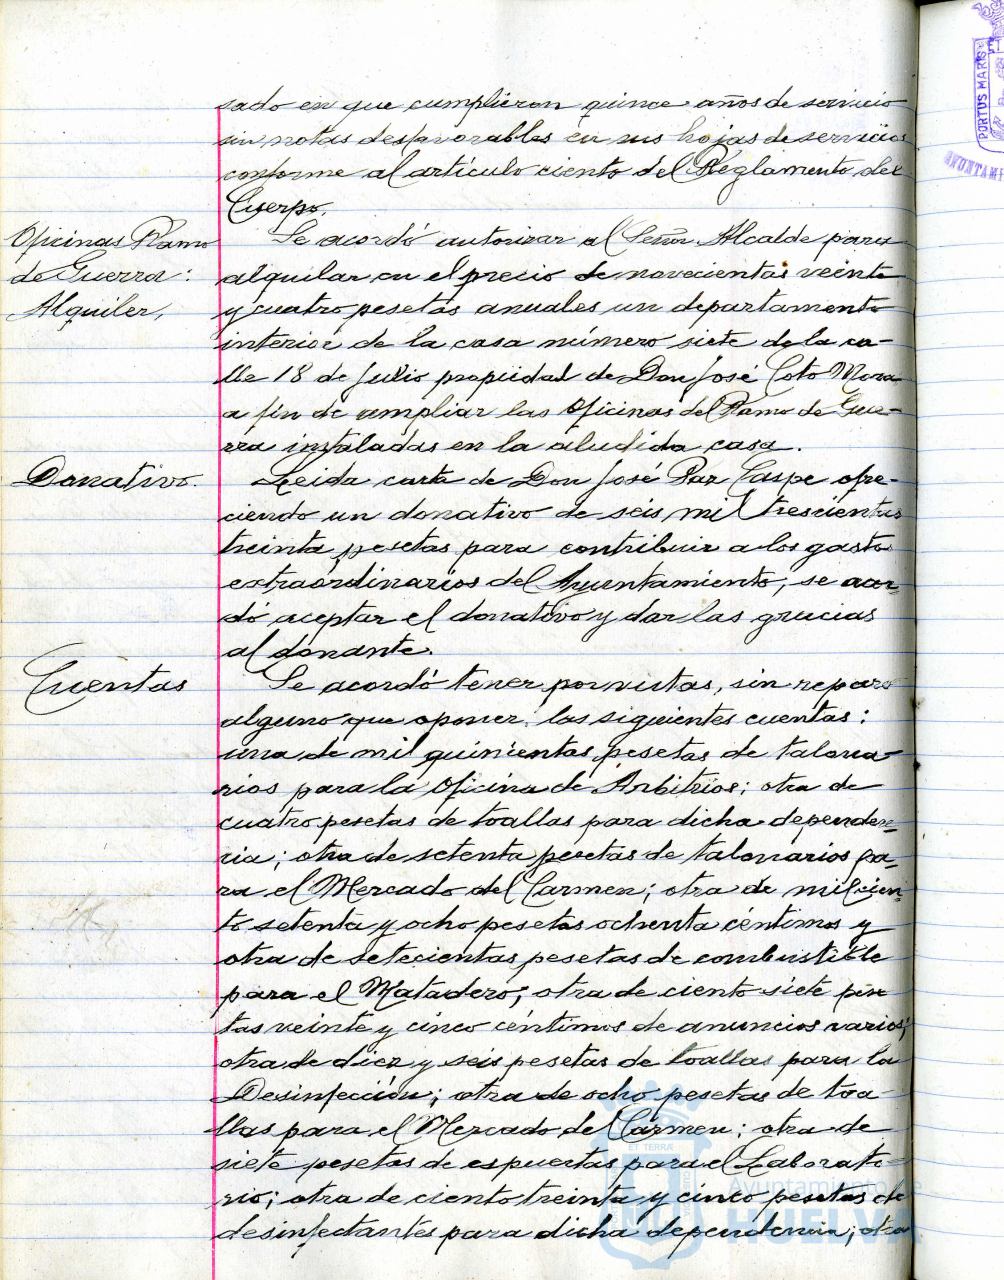 sado en que cumplieron quince años de servicio
sin notas desfavorables en sus hojas de servicios
conforme al artículo ciento del Reglamento del
Cuerpo.
Oficinas Ramo
de Guerra:
Alquiler,
Se acordó autorizar al Señor Alcalde para
alquilar en el precio de novecientas veinte
y cuatro pesetas anuales un departamento
interior de la casa número siete de la ca-
lle 18 de Julio propiedad de Don José Coto Mora
a fin de ampliar las Oficinas del Ramo de Gue-
rra instaladas en la aludida casa.
Donativo.
Leida carta de Don José Paz Caspe ofre-
ciendo un donativo de seis mil trescientas
treinta pesetas para contribuir a los gastos
extraordinarios del Ayuntamiento, se acor-
dó aceptar el donativo y dar las gracias
al donante.
Cuentas
Se acordó tener por vistas, sin reparo
alguno que oponer, las siguientes cuentas:
una de mil quinientas pesetas de talona-
rios para la Oficina de Arbitrios; otra de
cuatro pesetas de toallas para dicha dependen-
cia; otra de setenta pesetas de talonarios pa-
ra el Mercado del Carmen; otra de mil cien-
to setenta y ocho pesetas ochenta céntimos y
otra de setecientas pesetas de combustible
para el Matadero; otra de ciento siete pese
tas veinte y cinco céntimos de anuncios varios;
otra de diez y seis pesetas de toallas para la
Desinfección; otra de ocho pesetas de toa-
llas para el Mercado del Carmen; otra de
siete pesetas de espuertas para el Laborato-
rio; otra de ciento treinta y cinco pesetas de
desinfectantes para dicha dependencia; otra
PORTUS MARIS
AYUNTAMI
ET TERRÆ
Ayuntamiento de
HUELVA